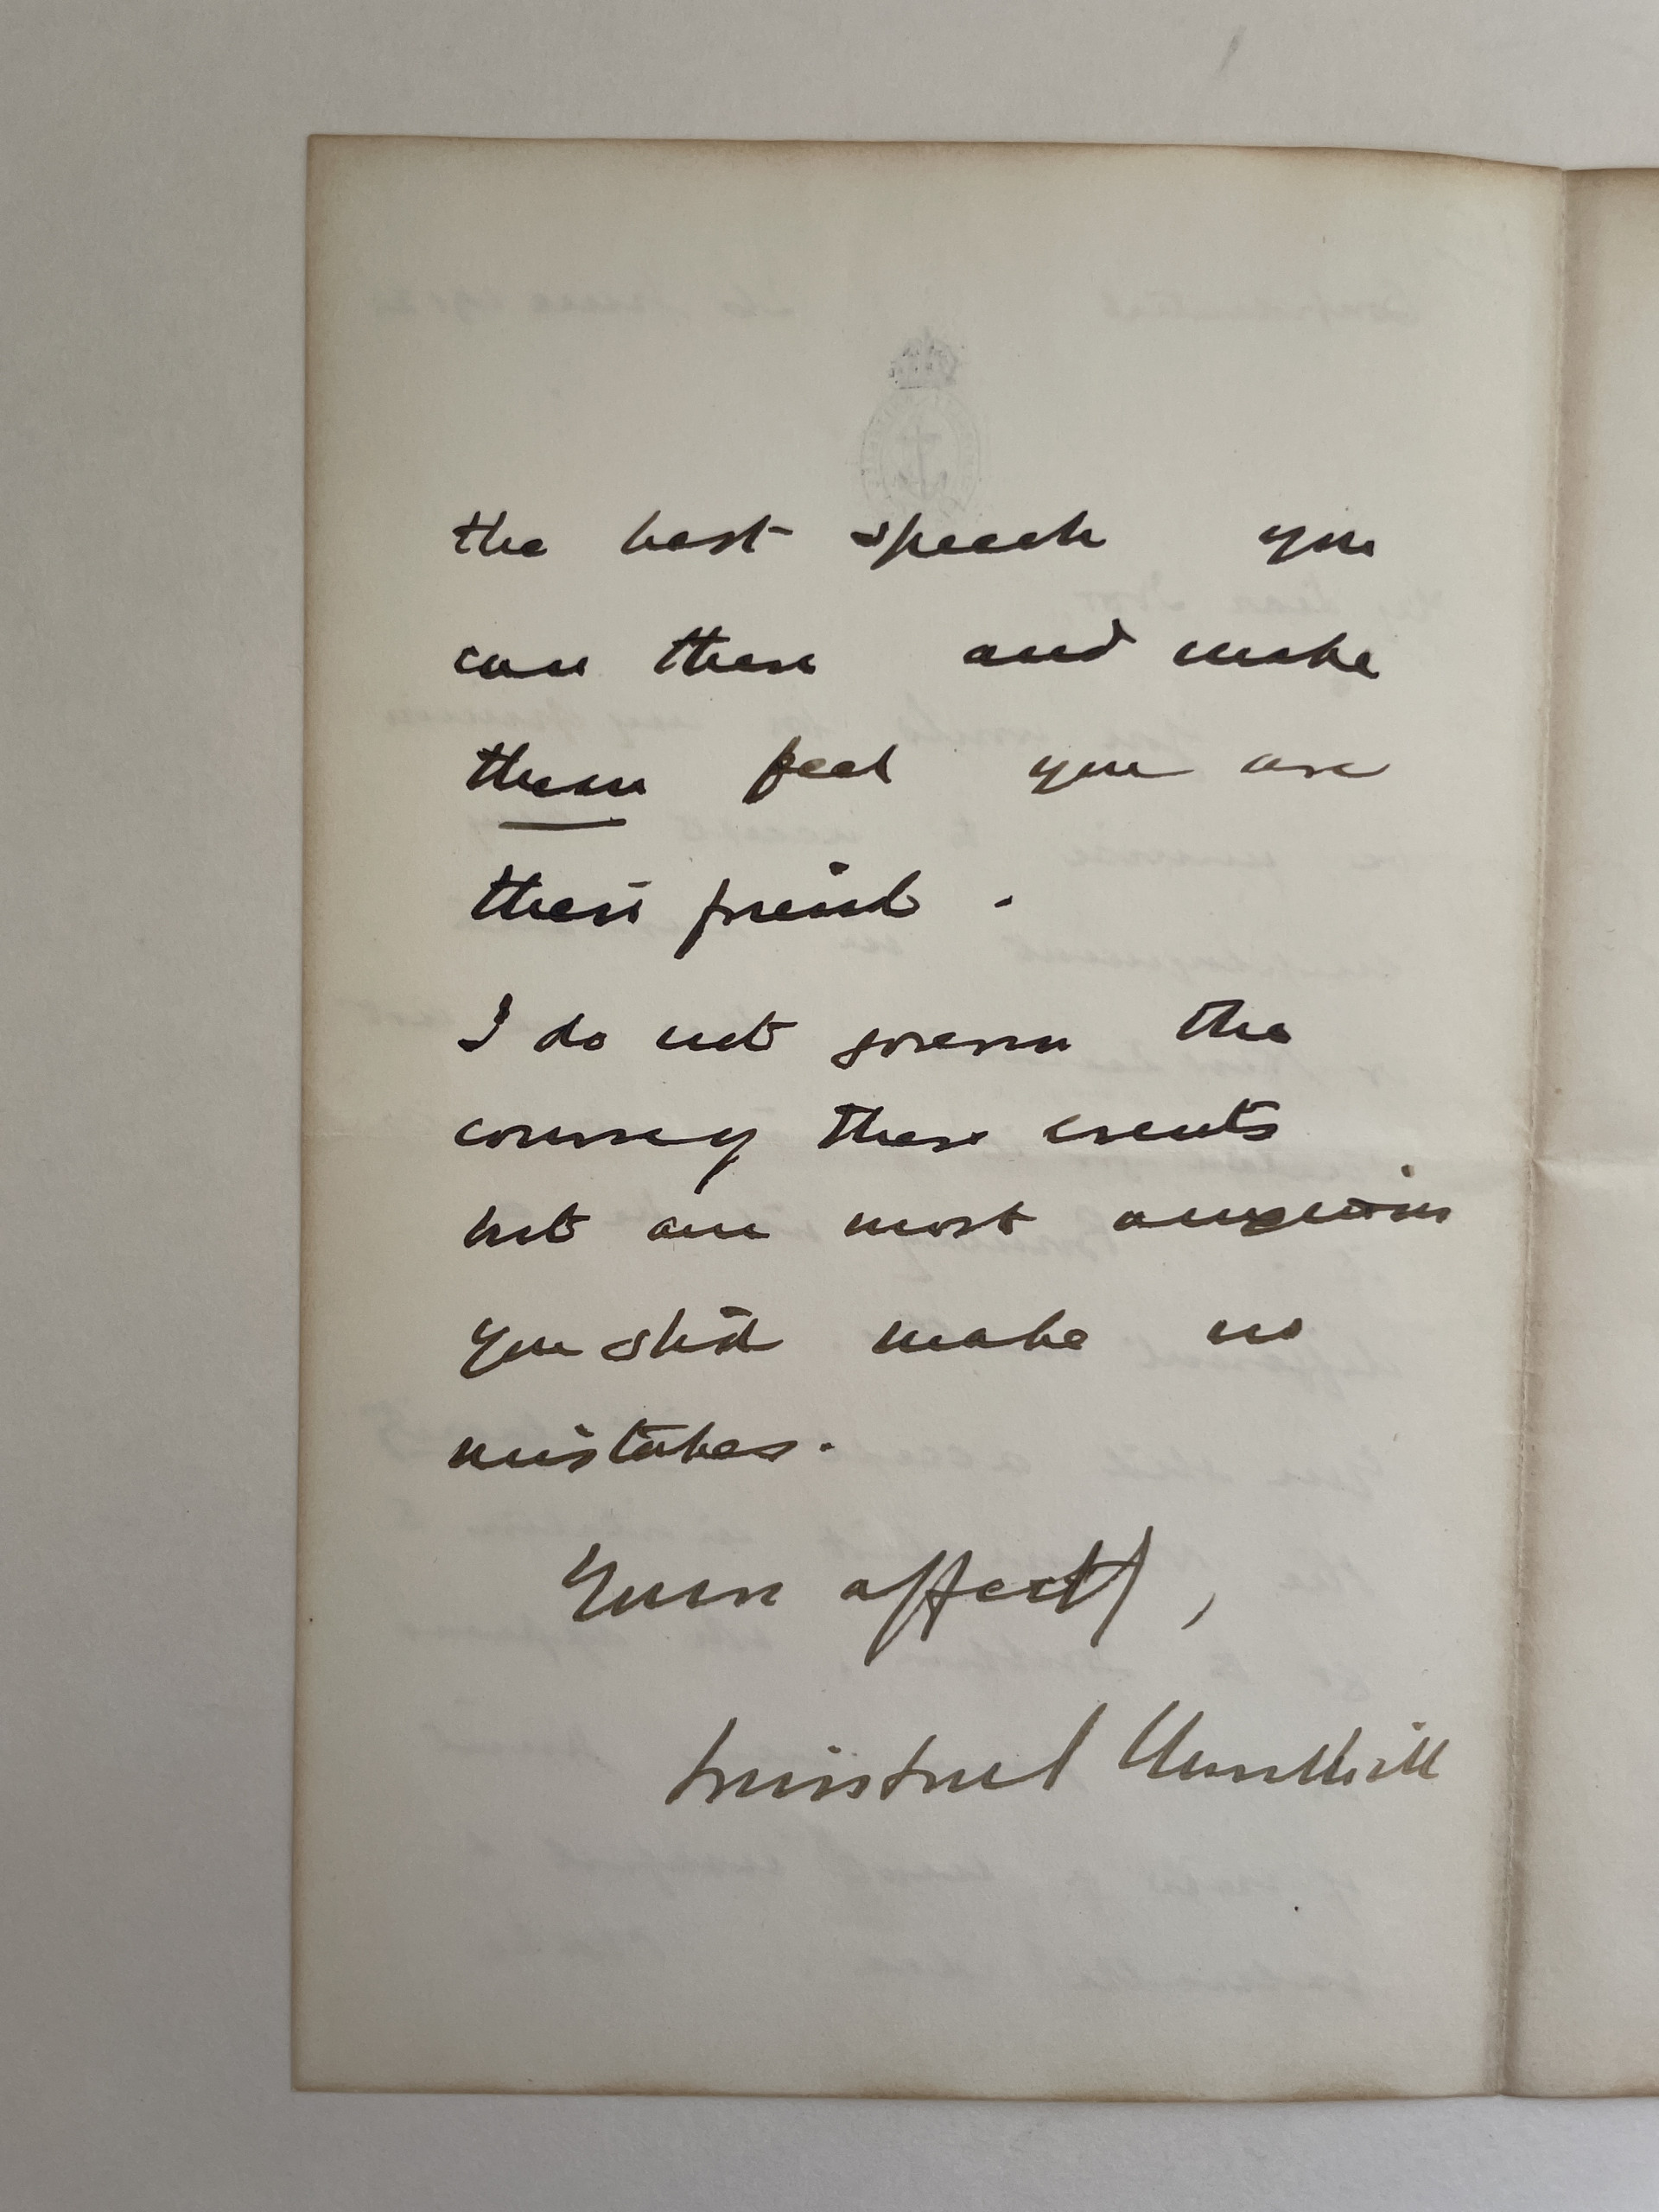 the best speech you
can there and make
them feel you are
their friend.
I do not govern the
course of these events
but am most anxious
you shd make no
mistakes.
Yours affectly,
Winston Churchill